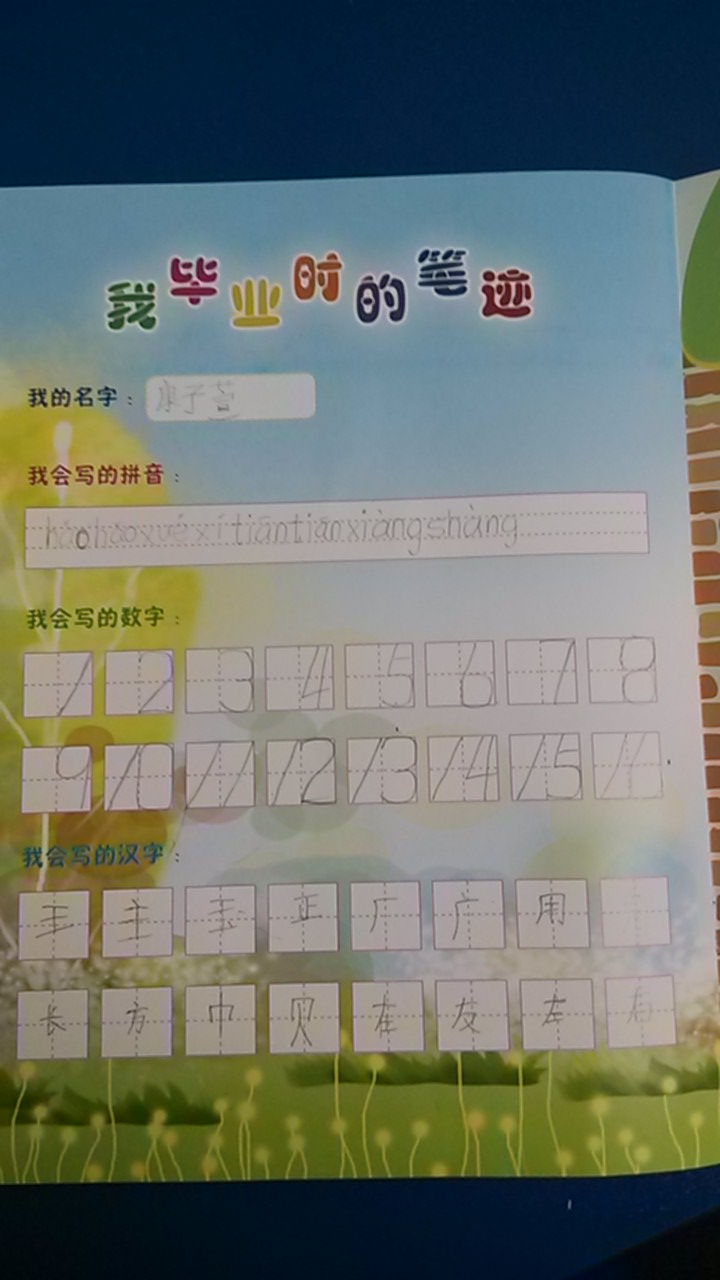 我毕业时的笔迹
我的名字：康子萱
我会写的拼音：
hǎohǎoxuéxítiāntiānxiàngshàng
我会写的数字：
1 2 3 4 5 6 7 8
9 10 11 12 13 14 15 16
我会写的汉字：
王 主 玉 正 厂 广 用
长 方 中 贝 在 友 左 右